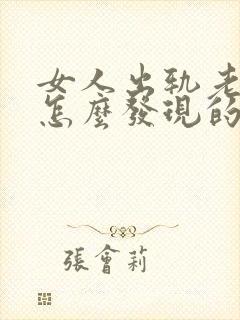 女人出軌老
怎麼發現的
張會莉